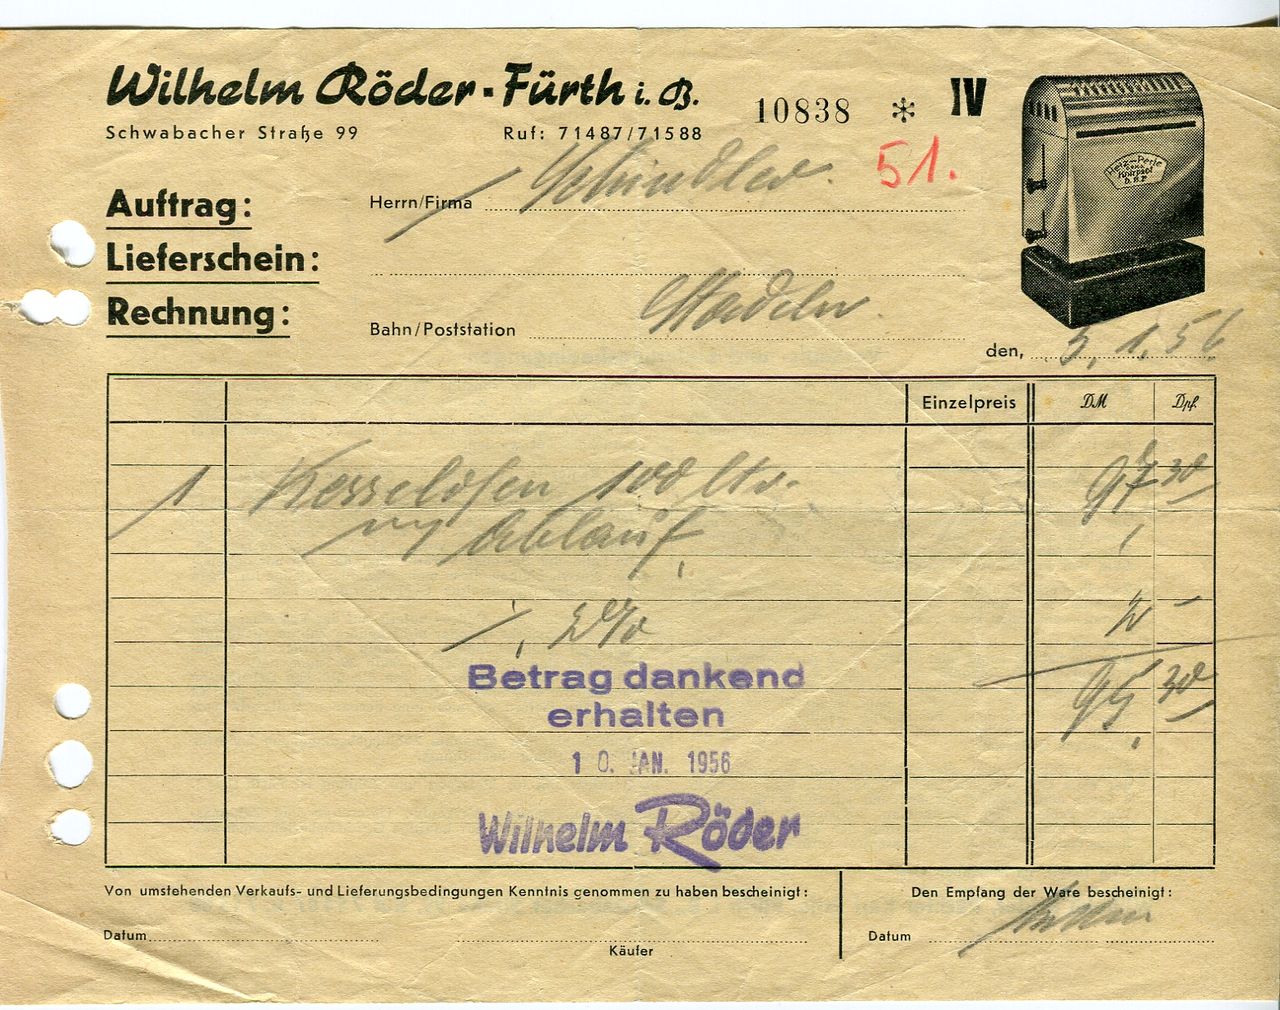 Wilhelm Röder - Fürth i. B.
Schwabacher Straße 99 Ruf: 71487/71588
10838 * IV
51.
Heiz-Perle
D.B.P.
Auftrag: Herrn/Firma Schindler.
Lieferschein:
Rechnung: Bahn/Poststation Stadeln.
den, 5. 1. 56
Einzelpreis DM Dpf.
1 Kesselofen 100 ltr. 97 30
m/ Ablauf
·/. 2% 2 -
95 30
Betrag dankend
erhalten
10. JAN. 1956
Wilhelm Röder
Von umstehenden Verkaufs- und Lieferungsbedingungen Kenntnis genommen zu haben bescheinigt:
Den Empfang der Ware bescheinigt:
Datum
Käufer
Datum